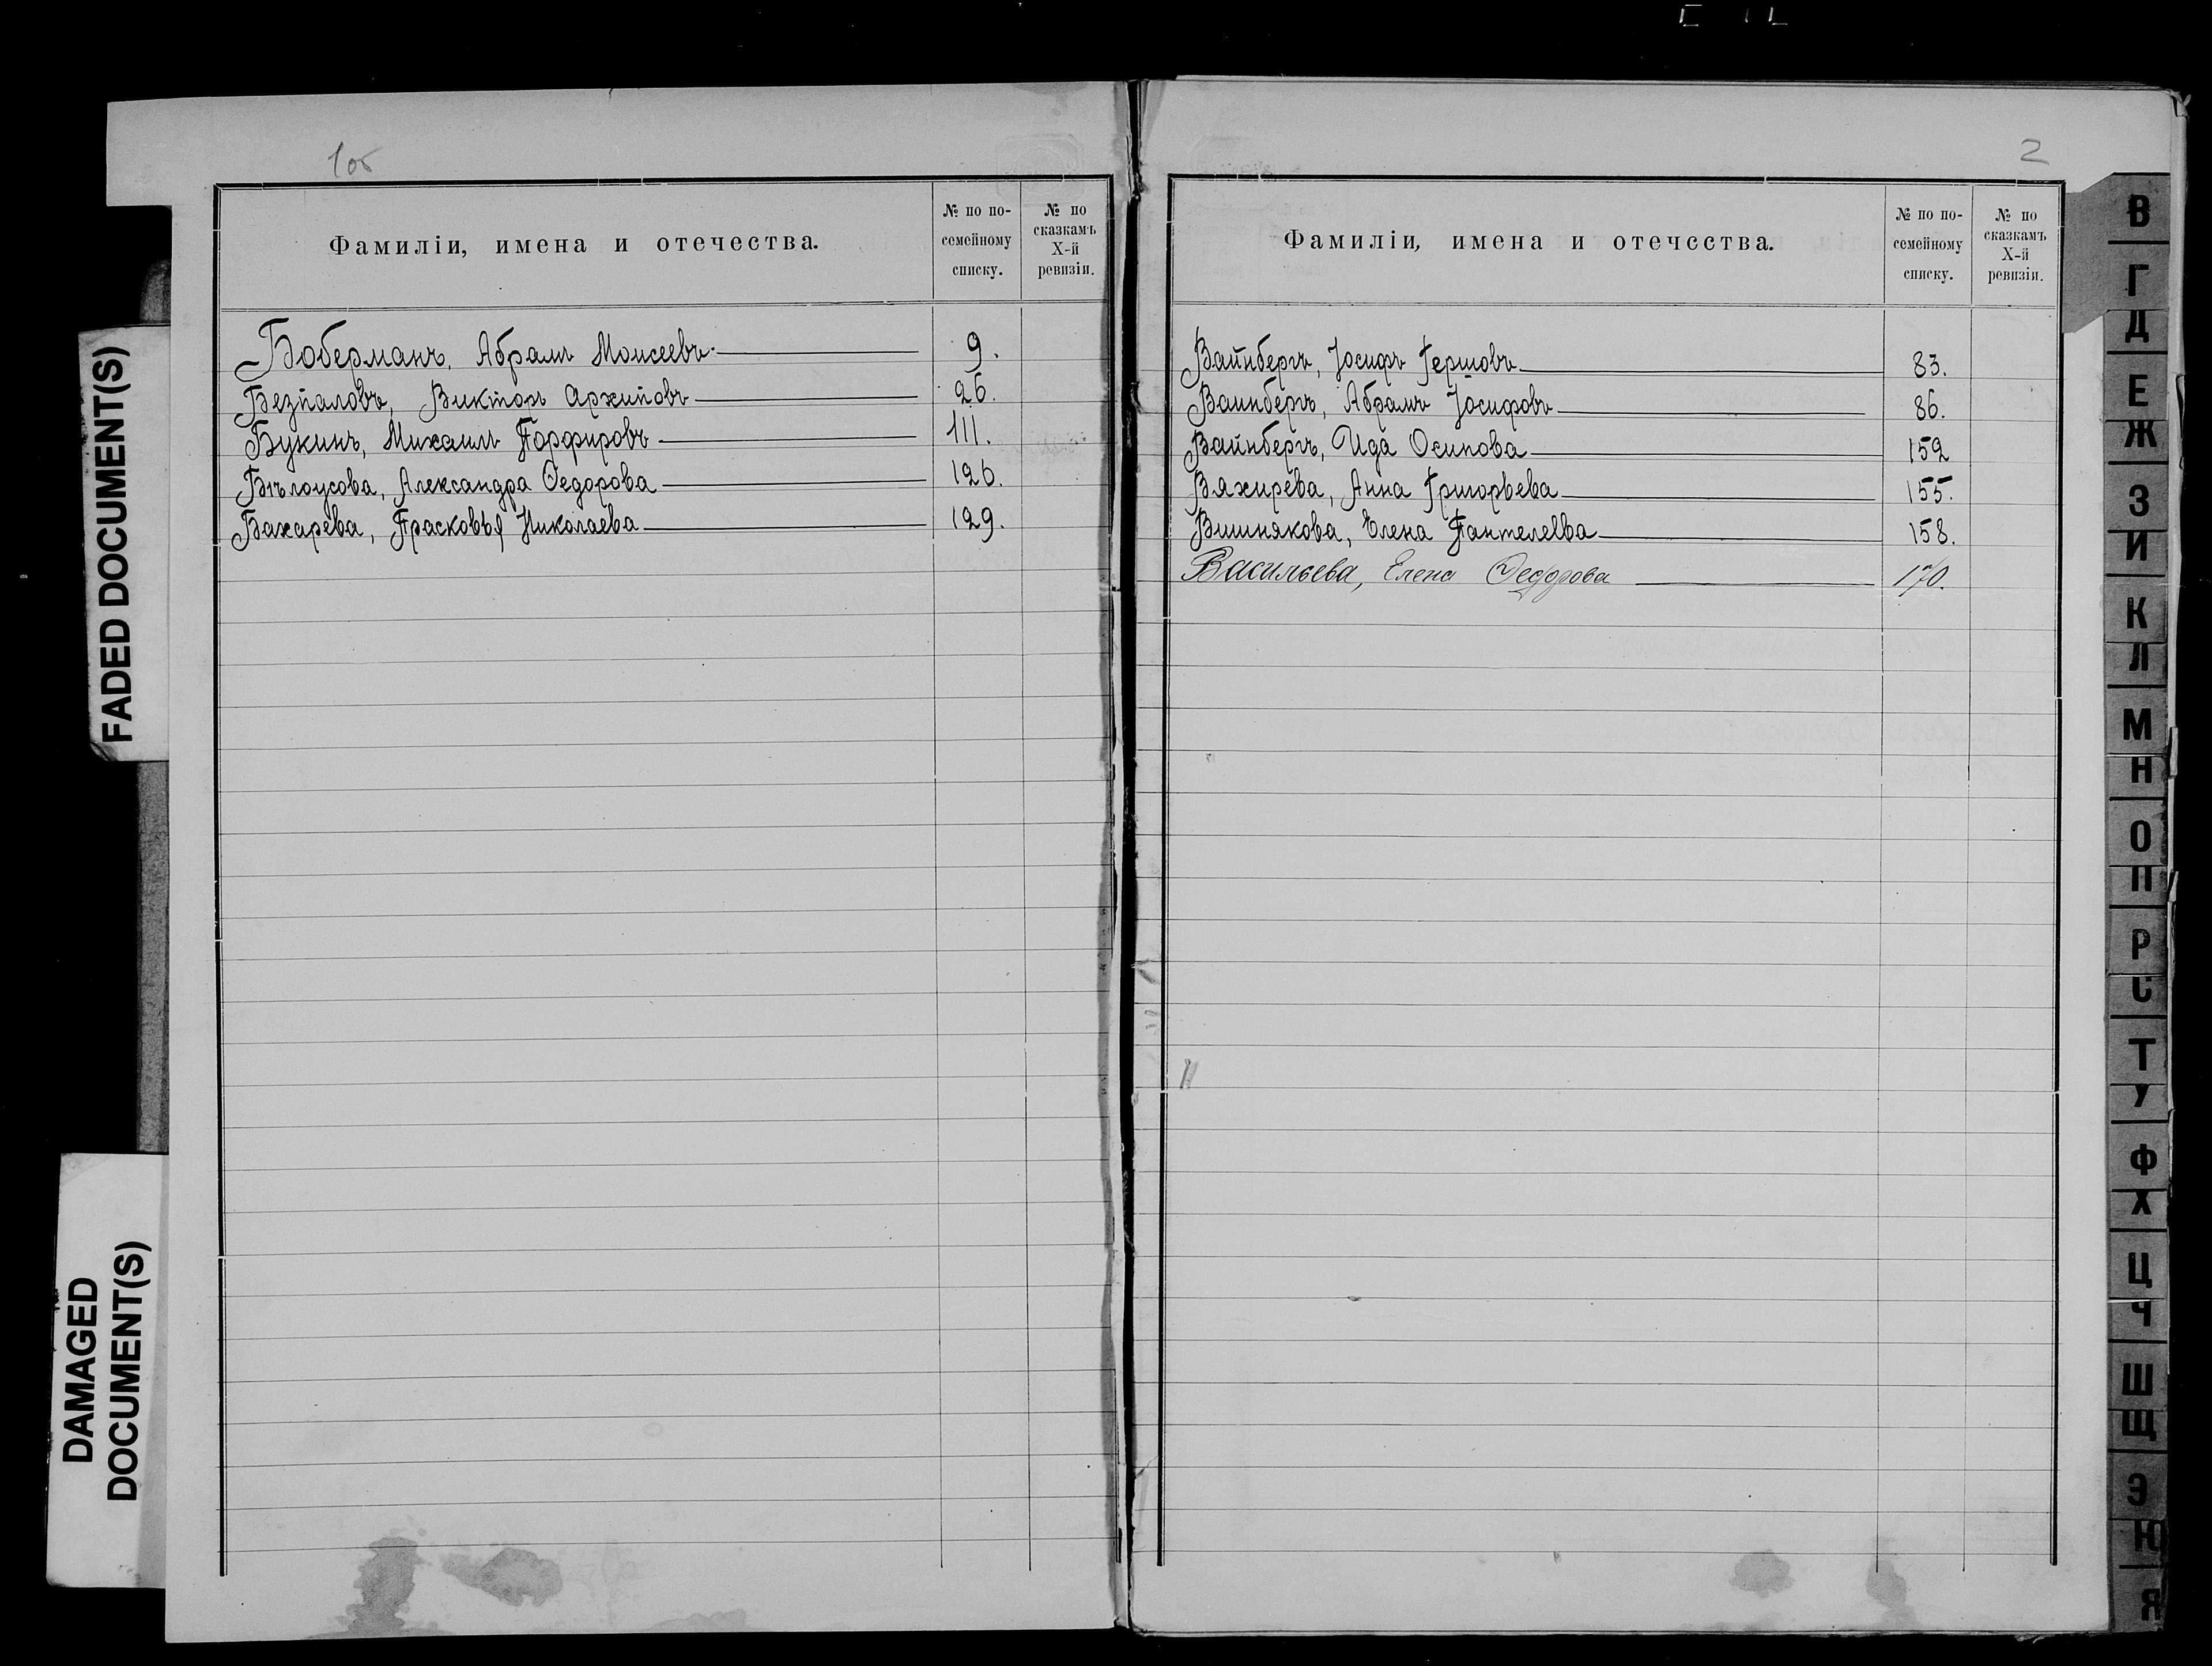 1об
Фамиліи, имена и отечества.
№ по по-
семейному
списку.
№ по
сказкамъ
X-й
ревизіи.
Боберманъ, Абрамъ Моисеевъ 9.
Безпаловъ, Викторъ Архиповъ 26.
Букинъ, Михаилъ Порфировъ 111.
Бѣлоусова, Александра Федорова 126.
Бахарева, Прасковья Николаева 129.
2
Фамиліи, имена и отечества.
№ по по-
семейному
списку.
№ по
сказкамъ
X-й
ревизіи.
Вайнбергъ, Іосифъ Гершовъ 83.
Вайнбергъ, Абрамъ Іосифовъ 86.
Вайнбергъ, Ида Осипова 152
Вяхирева, Анна Григорьева 155.
Вишнякова, Елена Пантелеева 158.
Васильева, Елена Федорова 170.
В
Г
Д
Е
Ж
З
И
К
Л
М
Н
О
П
Р
С
Т
У
Ф
Х
Ц
Ч
Ш
Щ
Э
Ю
Я
FADED DOCUMENT(S)
DAMAGED
DOCUMENT(S)